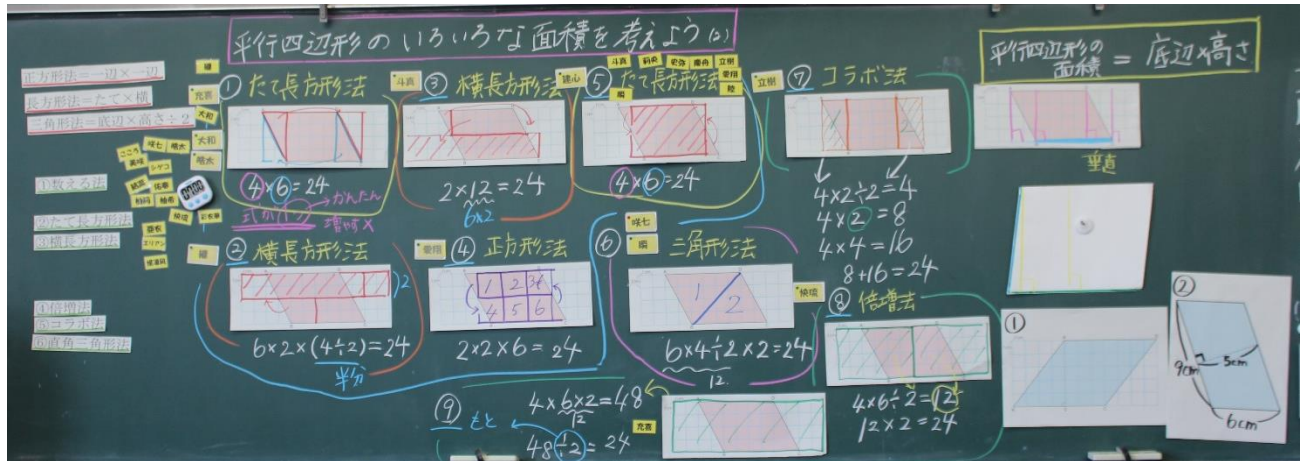 平行四辺形のいろいろな面積を考えよう(2)
平行四辺形の面積 = 底辺×高さ
正方形法=一辺×一辺
長方形法=たて×横
三角形法=底辺×高さ÷2
①数える法
②たて長方形法
③横長方形法
④倍増法
⑤コラボ法
⑥直角三角形法
充喜
大和
大和
颯太
こころ
咲七
颯太
シゲコ
快璃
エリアン
07:00
① たて長方形法
4×6=24
式が1つ
かんたん
増やす×
斗真
② 横長方形法
2
6×2×(4÷2)=24
半分
③ 横長方形法
2×12=24
6×2
建心
④ 正方形法
1 2 3
4 5 6
2×2×6=24
⑤ たて長方形法
斗真
莉央
史弥
慶舟
立樹
瞬
陸
4×6=24
立樹
咲七
瞬
⑥ 三角形法
1
2
6×4÷2×2=24
12
快璃
⑦ コラボ法
2
4×2÷2=4
4×2=8
4×4=16
8+16=24
⑧ 倍増法
4×6÷2=12
12×2=24
⑨ もと
4×6×2=48
12
48÷2=24
充喜
垂直
①
②
9cm
5cm
6cm